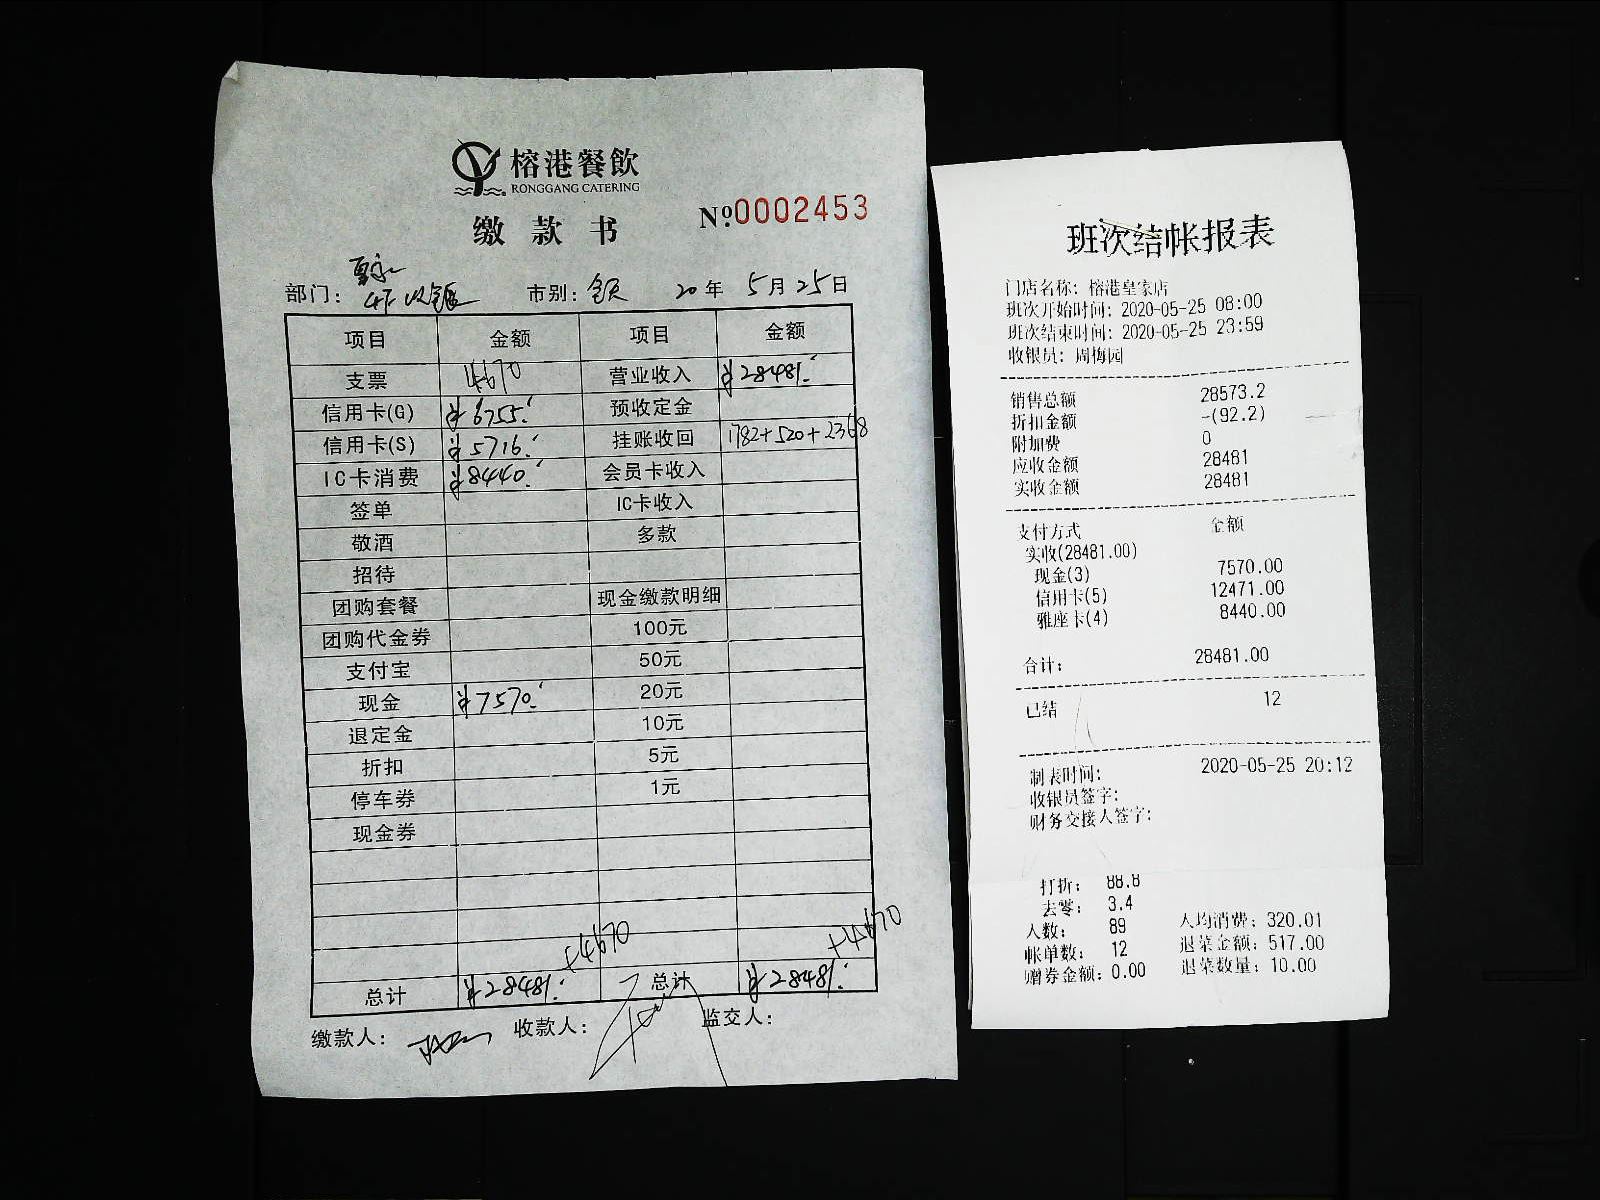 榕港餐飲
RONGGANG CATERING
缴款书
№0002453
部门: 4F收银 市别: 全天 20年 5月25日
项目 金额 项目 金额
支票 4670 营业收入 ¥28481.
信用卡(G) ¥6755. 预收定金
信用卡(S) ¥5716. 挂账收回 1782+520+2368
IC卡消费 ¥8440. 会员卡收入
签单 IC卡收入
敬酒 多款
招待
团购套餐 现金缴款明细
团购代金券 100元
支付宝 50元
现金 ¥7570. 20元
退定金 10元
折扣 5元
停车券 1元
现金券
+4670 +4670
总计 ¥28481. 总计 ¥28481.
缴款人: 收款人: 监交人:
班次结帐报表
门店名称: 榕港皇家店
班次开始时间: 2020-05-25 08:00
班次结束时间: 2020-05-25 23:59
收银员: 周梅园
销售总额 28573.2
折扣金额 -(92.2)
附加费 0
应收金额 28481
实收金额 28481
支付方式 金额
实收(28481.00)
现金(3) 7570.00
信用卡(5) 12471.00
雅座卡(4) 8440.00
合计: 28481.00
已结 12
制表时间: 2020-05-25 20:12
收银员签字:
财务交接人签字:
打折: 88.8
去零: 3.4
人数: 89 人均消费: 320.01
帐单数: 12 退菜金额: 517.00
赠券金额: 0.00 退菜数量: 10.00